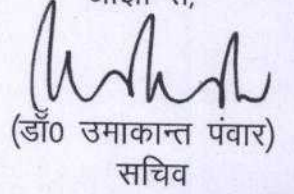 (डॉ0 उमाकान्त पंवार)
सचिव